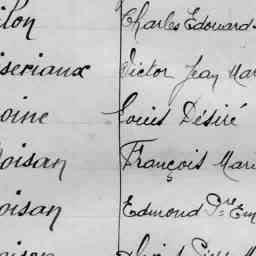 ilon Charles Edouard
seriaux Victor Jean Mar
oine Louis Désiré
oisan François Mari
oisan Edmond Jh Em